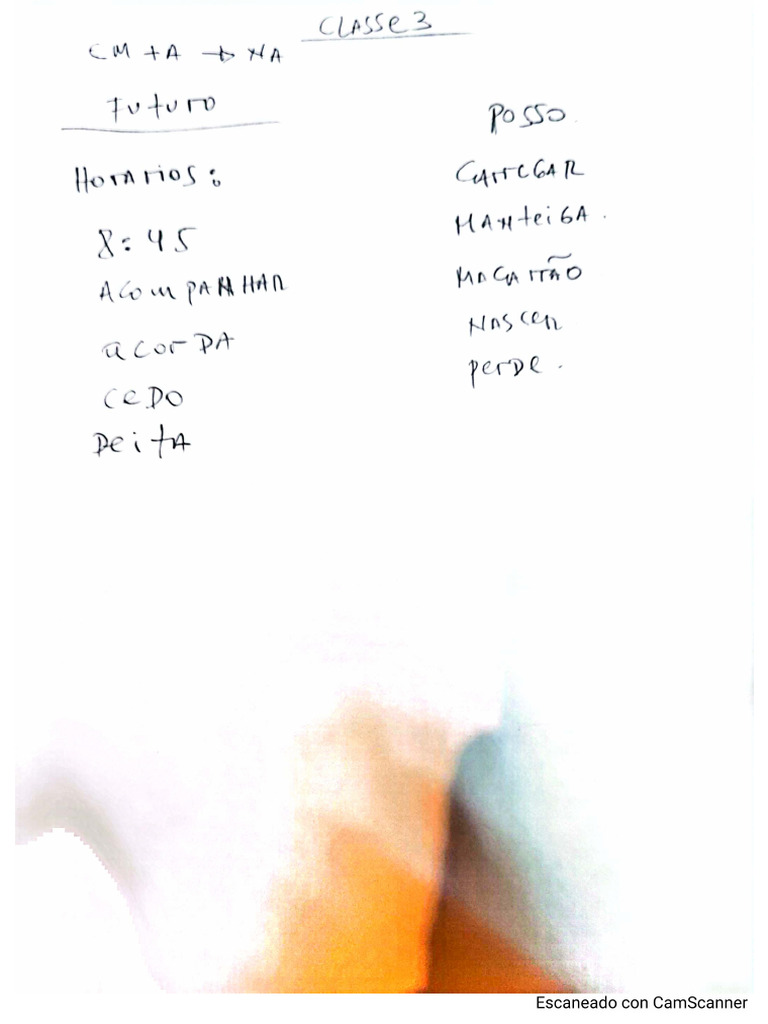 CLASSe 3
CM + A → NA
Futuro
Horarios:
8:45
Acompanhar
acorDA
CeDO
DeitA
Posso.
CarreGAR
Manteiga.
Macarrão
Nascer
perde.
Escaneado con CamScanner